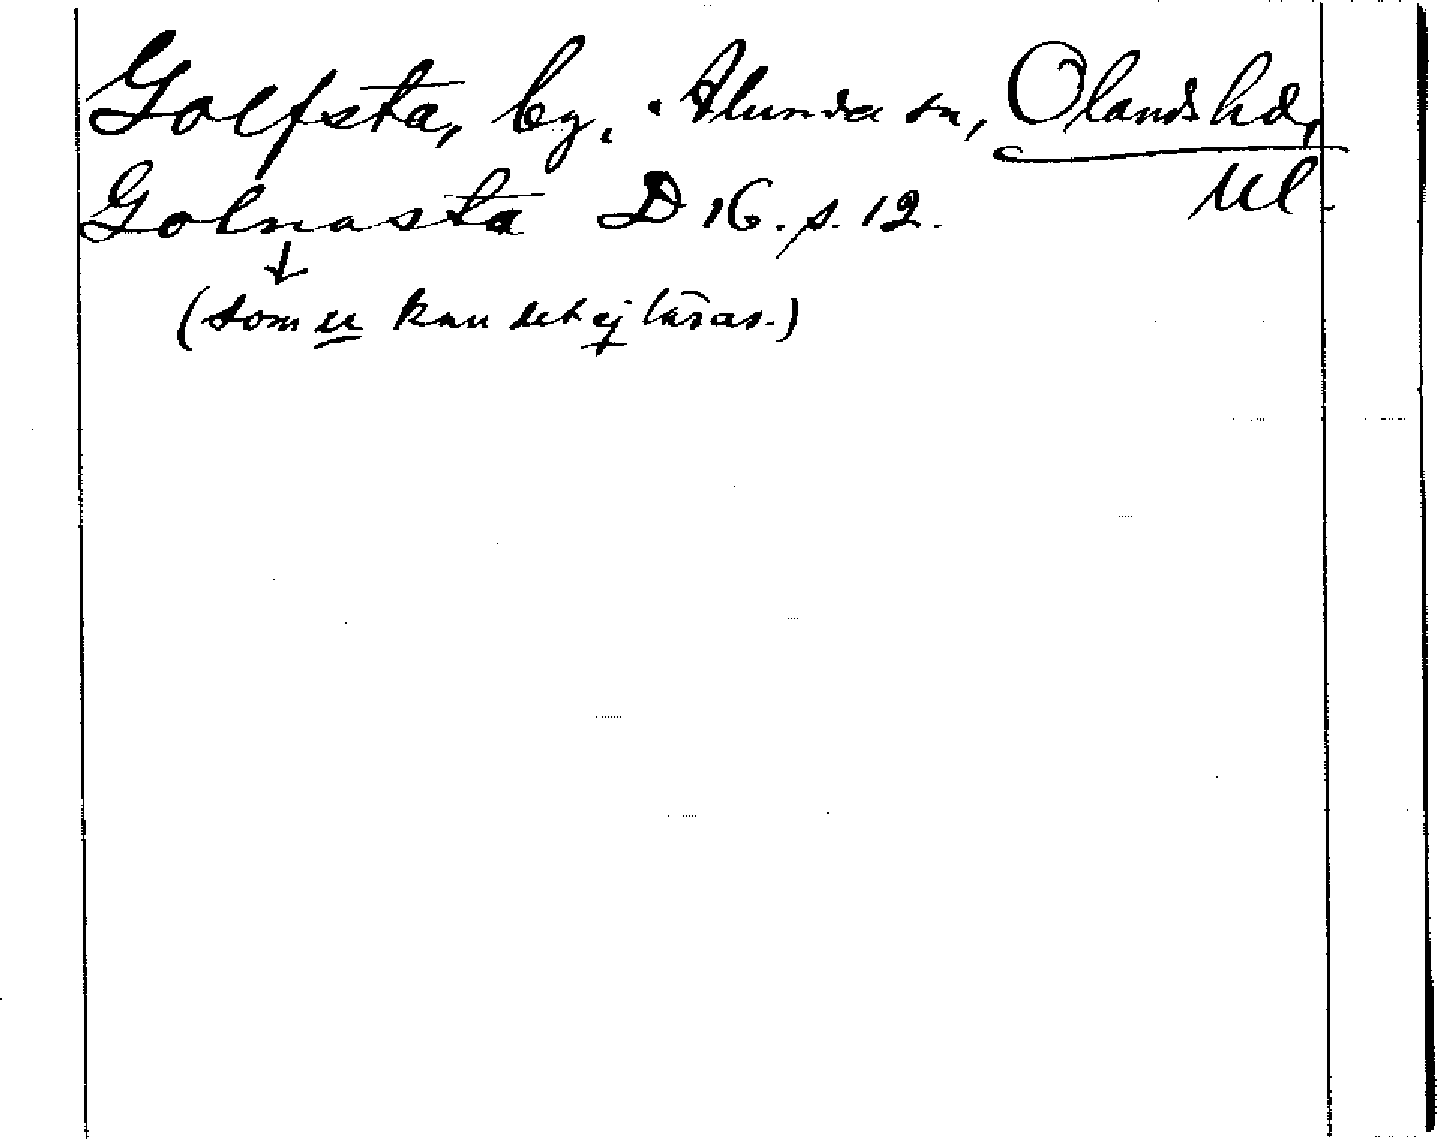 Golfsta, by. Alunda sn, Olands hd,
Ul.
Golnasta D 16. s. 12.
(som u kan det ej läsas.)